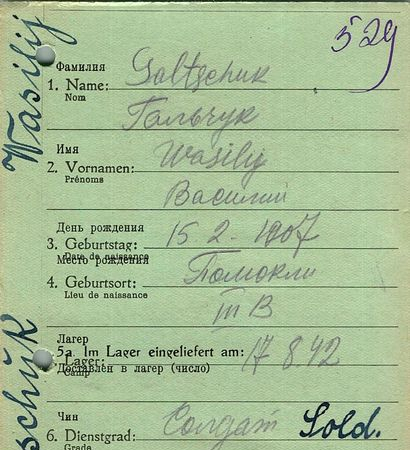 529
Wasilij
Фамилия
1. Name: Galtschuk
Nom
Гальчук
Имя
2. Vornamen: Wasilij
Prénoms
Василий
День рождения
3. Geburtstag: 15 2. 1907
Date de naissance
Место рождения
4. Geburtsort:
Lieu de naissance
III B
Лагер
5a. Im Lager eingeliefert am: 17 8.42
Lager:
Camp
Доставлен в лагер (число)
schuk
Чин
6. Dienstgrad: Солдат Sold.
Grade